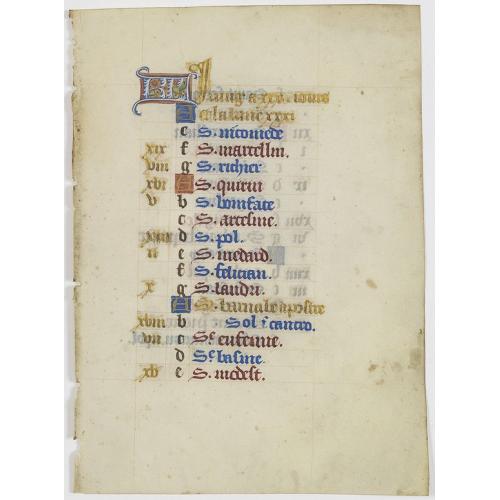 KL Juing a xxx. iours
A et la lune xxx
e S. nicomede
xix f S. marcellin.
viii g S. richier
xvi A S. quirin
v b S. boniface
c S. arcesine.
xiii d S. pol.
ii e S. medard.
f S. felician.
x g S. landri.
A S. barnabe apostre
xviii b Sol i cancro.
vii c Se. eufemie.
d Se. basine.
xv e S. modest.